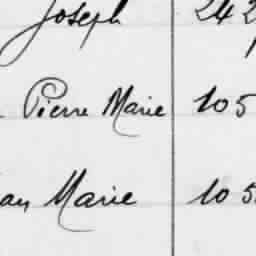 Joseph 242
Pierre Marie 105
an Marie 105